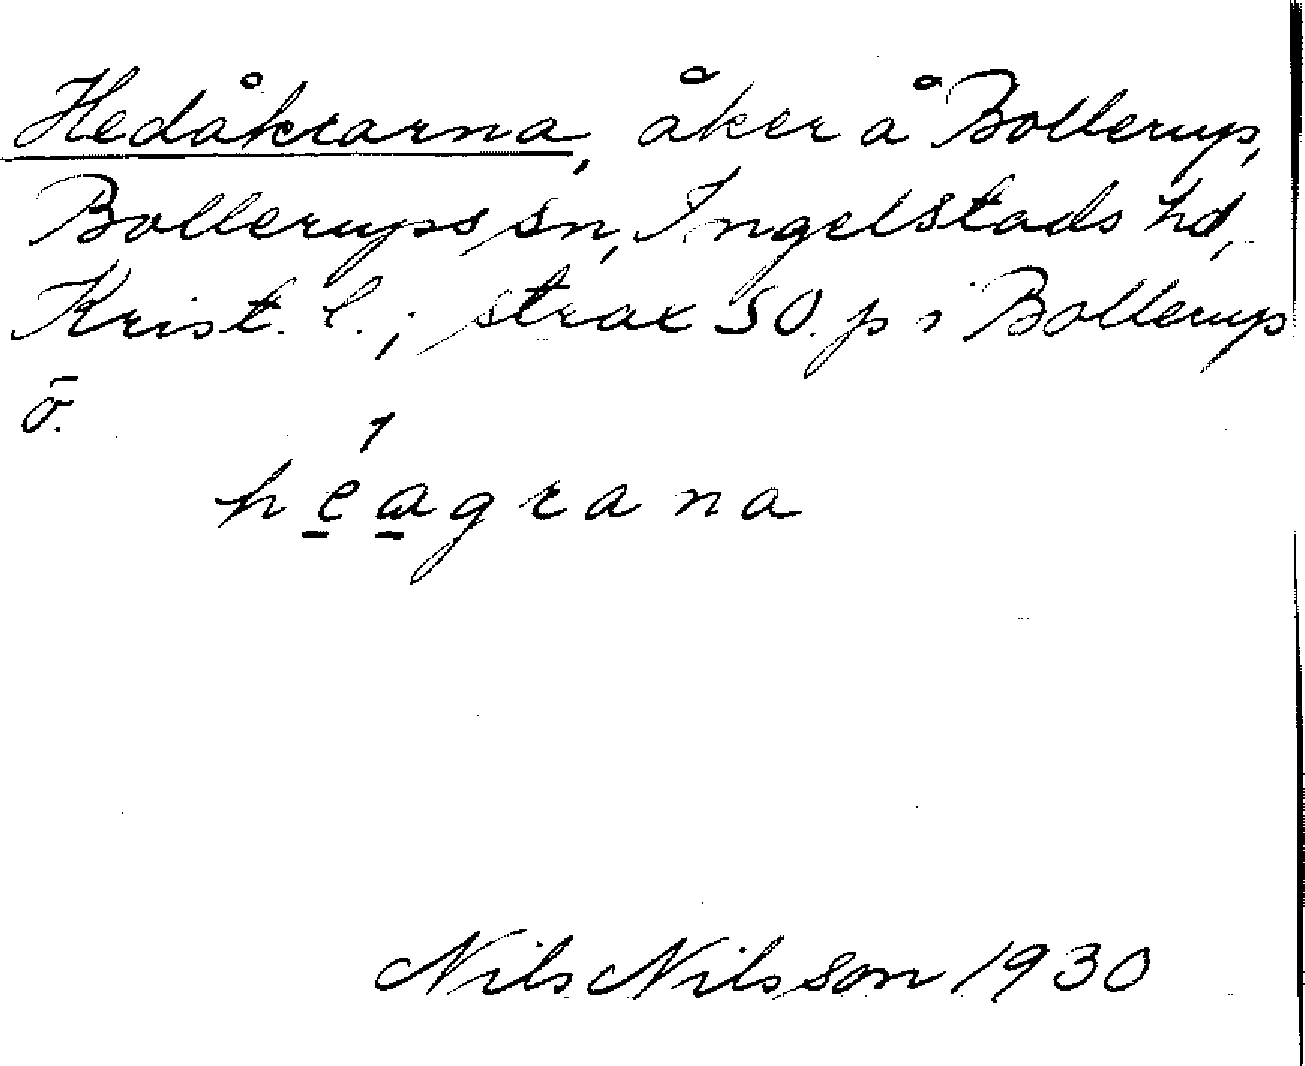 Hedåkrarna, åker å Bollerup,
Bollerups sn, Ingelstads hd,
Krist. l.; strax SO. p i Bollerup
ö.
heagrana
Nils Nilsson 1930